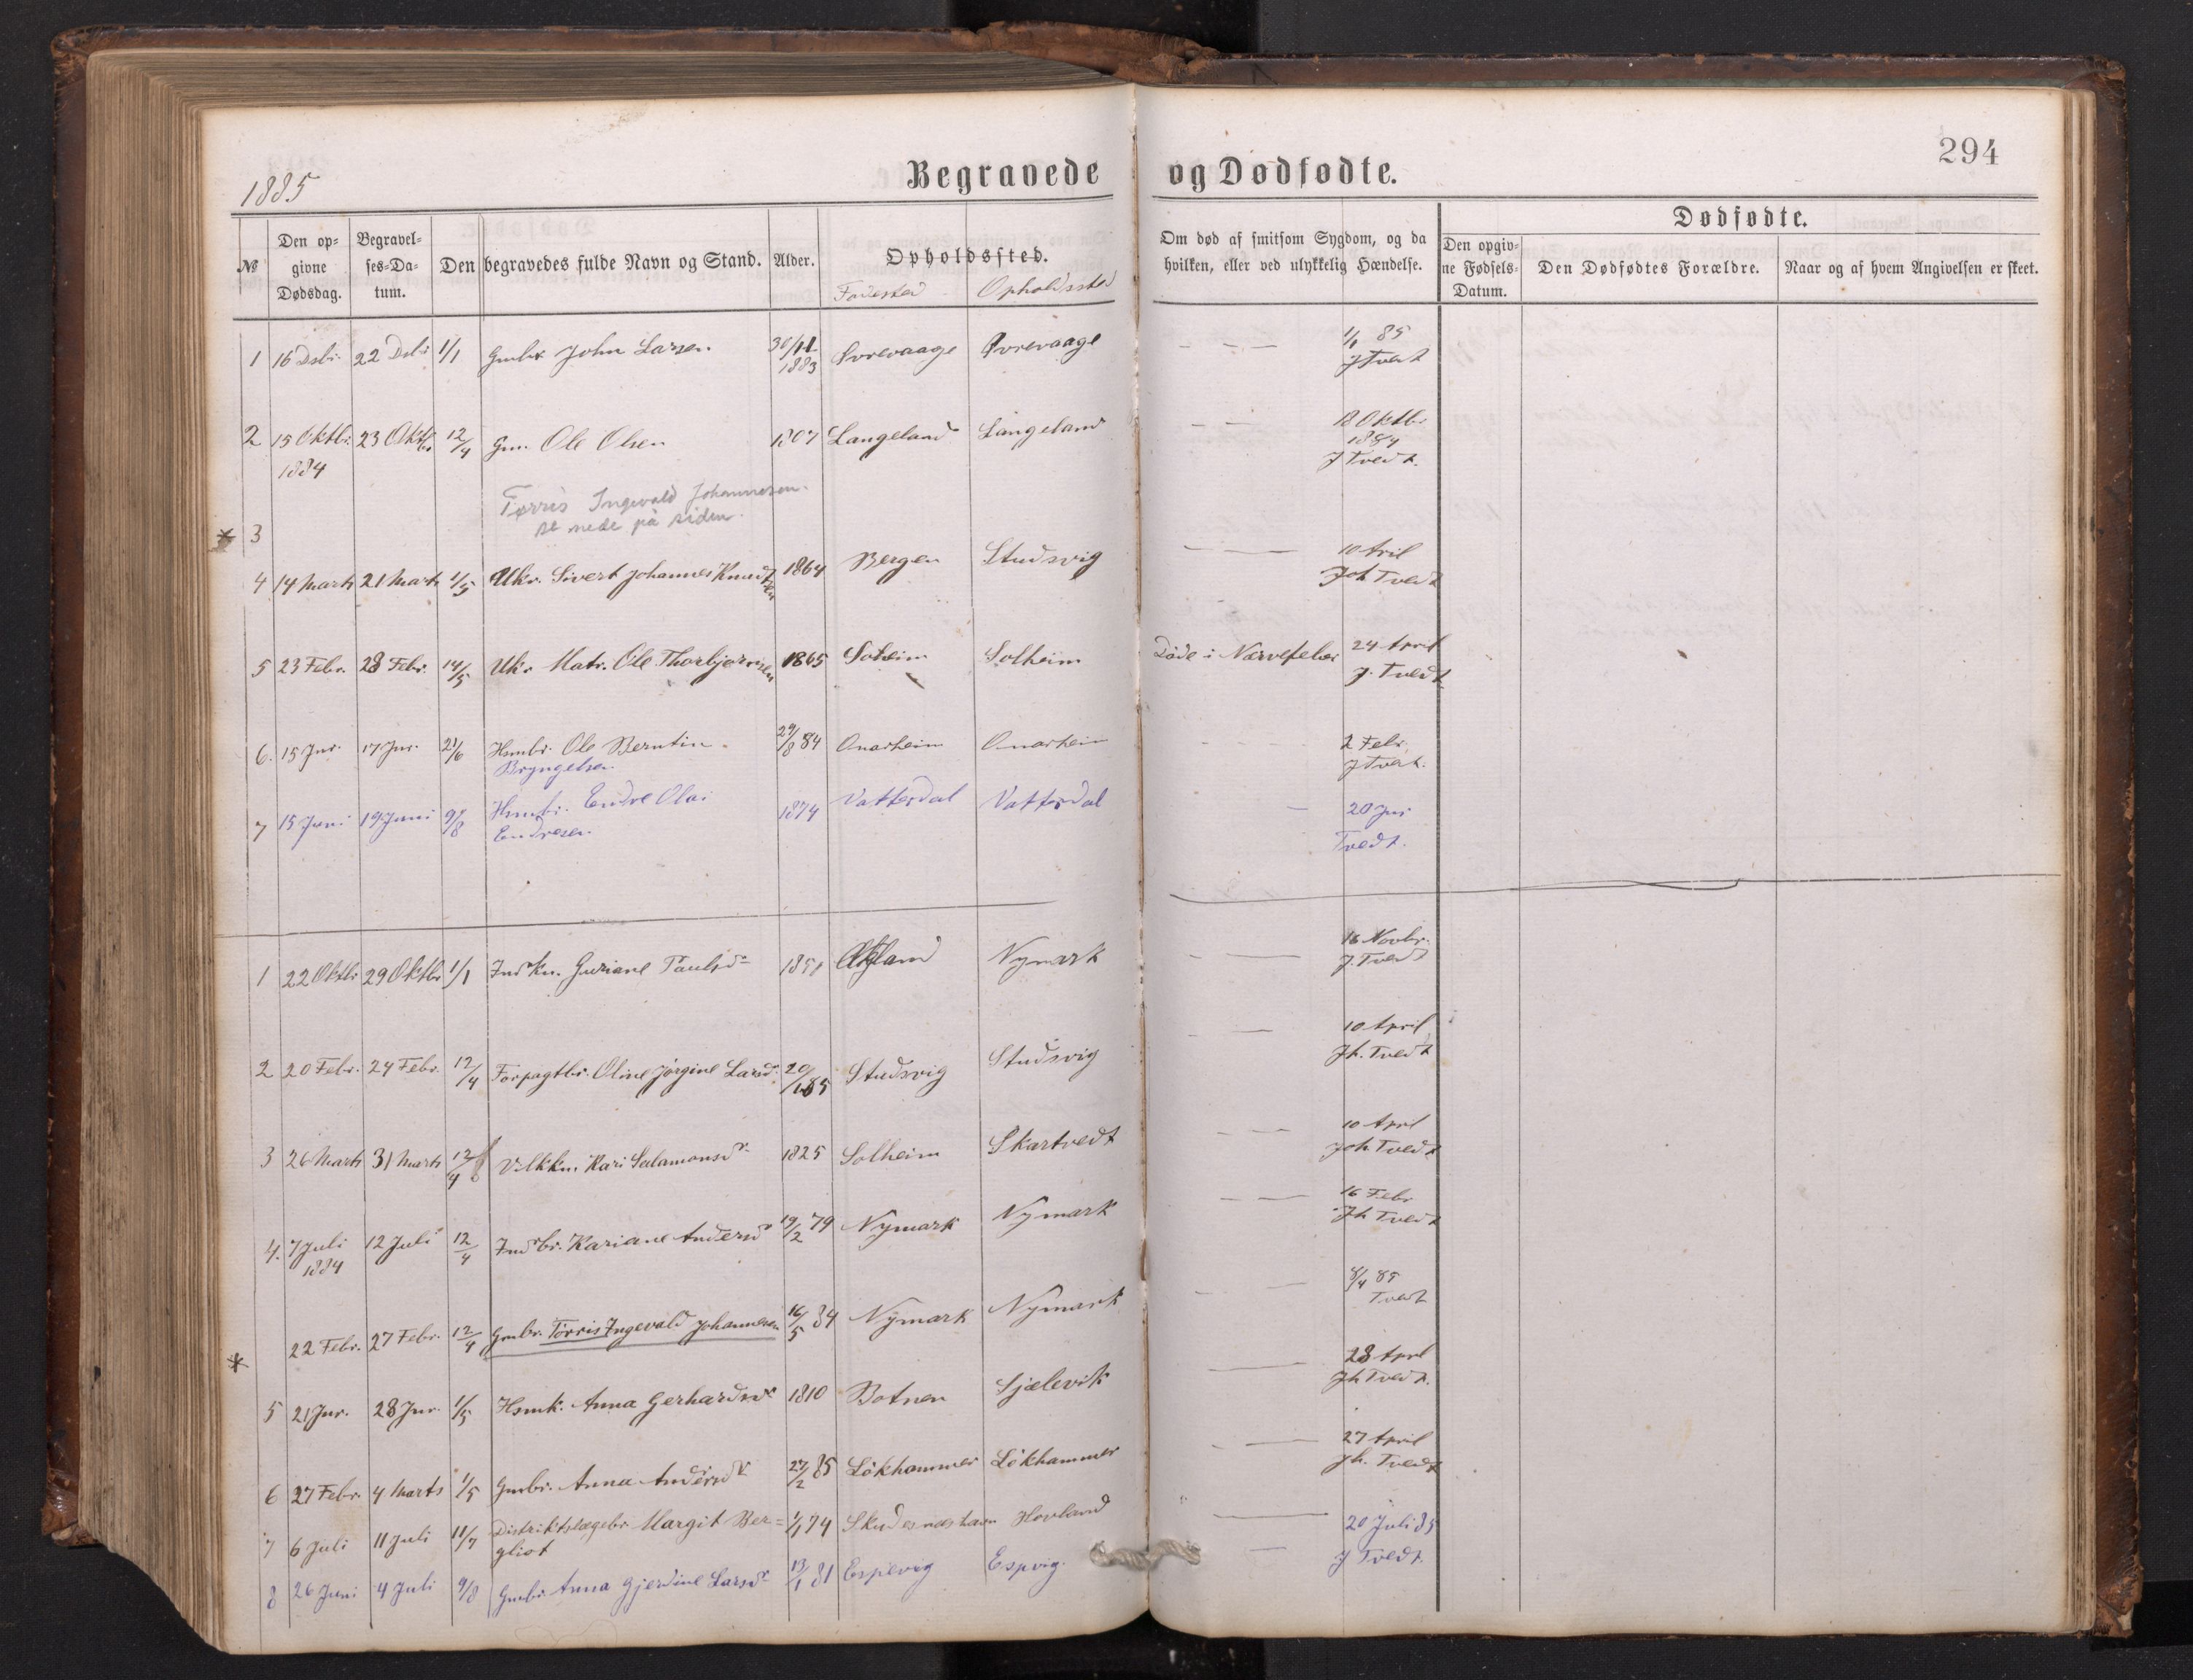 294
1885
Begravede og Dødfødte.
№ Den op= givne Dødsdag. Begravel= ses=Da= tum. Den begravedes fulde Navn og Stand. Alder. Opholdssted. Om død af smitsom Sygdom, og da hvilken, eller ved ulykkelig Hændelse. Dødfødte.
Fødested Opholdssted
Den opgiv= ne Fødsels= Datum. Den Dødfødtes Forældre. Naar og af hvem Angivelsen er skeet.
1 16 Dsbr. 22 Dsbr 1/1 Gmbr John Larsen 30/11 1883 Svrevaage 1/1 85
J Tvedt
2 15 Oktbr. 23 Oktbr 12/4 Gm. Ole Olsen 1807 Langeland Langeland — — 18 Oktbr
1884 1884
J Tvedt.
Tørris Ingevald Johannesen.
* 3 se nede på siden.
4 14 Marts 21 Marts 1/5 Ukr. Sivert Johannes Knudsen 1864 Bergen Studsvig — — 10 April
Joh Tvedt
5 23 Febr. 28 Febr. 14/5 Ukr. Matr. Ole Thorbjørnsen 1865 Solheim Solheim Døde i Nervefeber 24 April
J. Tvedt
6. 15 Jnr. 17 Jnr. 21/6 Hsmbr. Ole Berntin 29/8 84 Onarheim Onarheim 2 Febr.
Bryngelsen J Tvedt.
7 15 Juni 19 Juni 9/8 Hsmbr. Endre Olai 1874 Vattesdal Vattsdal — 20 Jnr
Endresen Tvedt.
1 22 Oktbr 29 Oktbr 1/1 Inds kn. Guriane Paulsdr Nymark — — 16 Novbr.
J. Tvedt
2 20 Febr. 24 Febr. 12/4 Forpagtbr. Oline Jørgine Larsdr. 20/1 85 Studsvig Studsvig — — 10 April
Jh. Tvedt
3 26 Marts 31 Marts 12/4 Vilkkn. Kari Salamonsdr. 1825 Solheim Skartvedt — — 10 April
Joh Tvedt
4. 7 Juli 12 Juli 12/4 Indsbr. Kariane Andersdr 19/2 79 Nymark Nymark — — 16 Febr
1884 Jh Tvedt
* 22 Febr. 27 Febr. 12/4 Gmbr. Tørris Ingevald Johannesen 16/5 84 Nymark Nymark — — 8/4 85
Tvedt
5 21 Jnr. 28 Jnr. 1/5 Hsmk. Anna Gerhardsdr 1810 Botnen Sjælevik — 28 April
Jh Tvedt.
6 27 Febr. 4 Marts 1/5 Gmbr. Anna Andersdr 27/2 85 Løkhammer Løkhammer — — 27 April
Jh. Tvedt
7 6 Juli 11 Juli 11/7 Distriktslægebr Margit Ber= 1/1 74 Skudesneshavn Hovland — 20 Juli 85
gliot J Tvedt.
8 26 Juni 4 Juli 9/8 Gmbr Anna Gjerdine Larsdr 13/1 81 Espevig Espvig. —